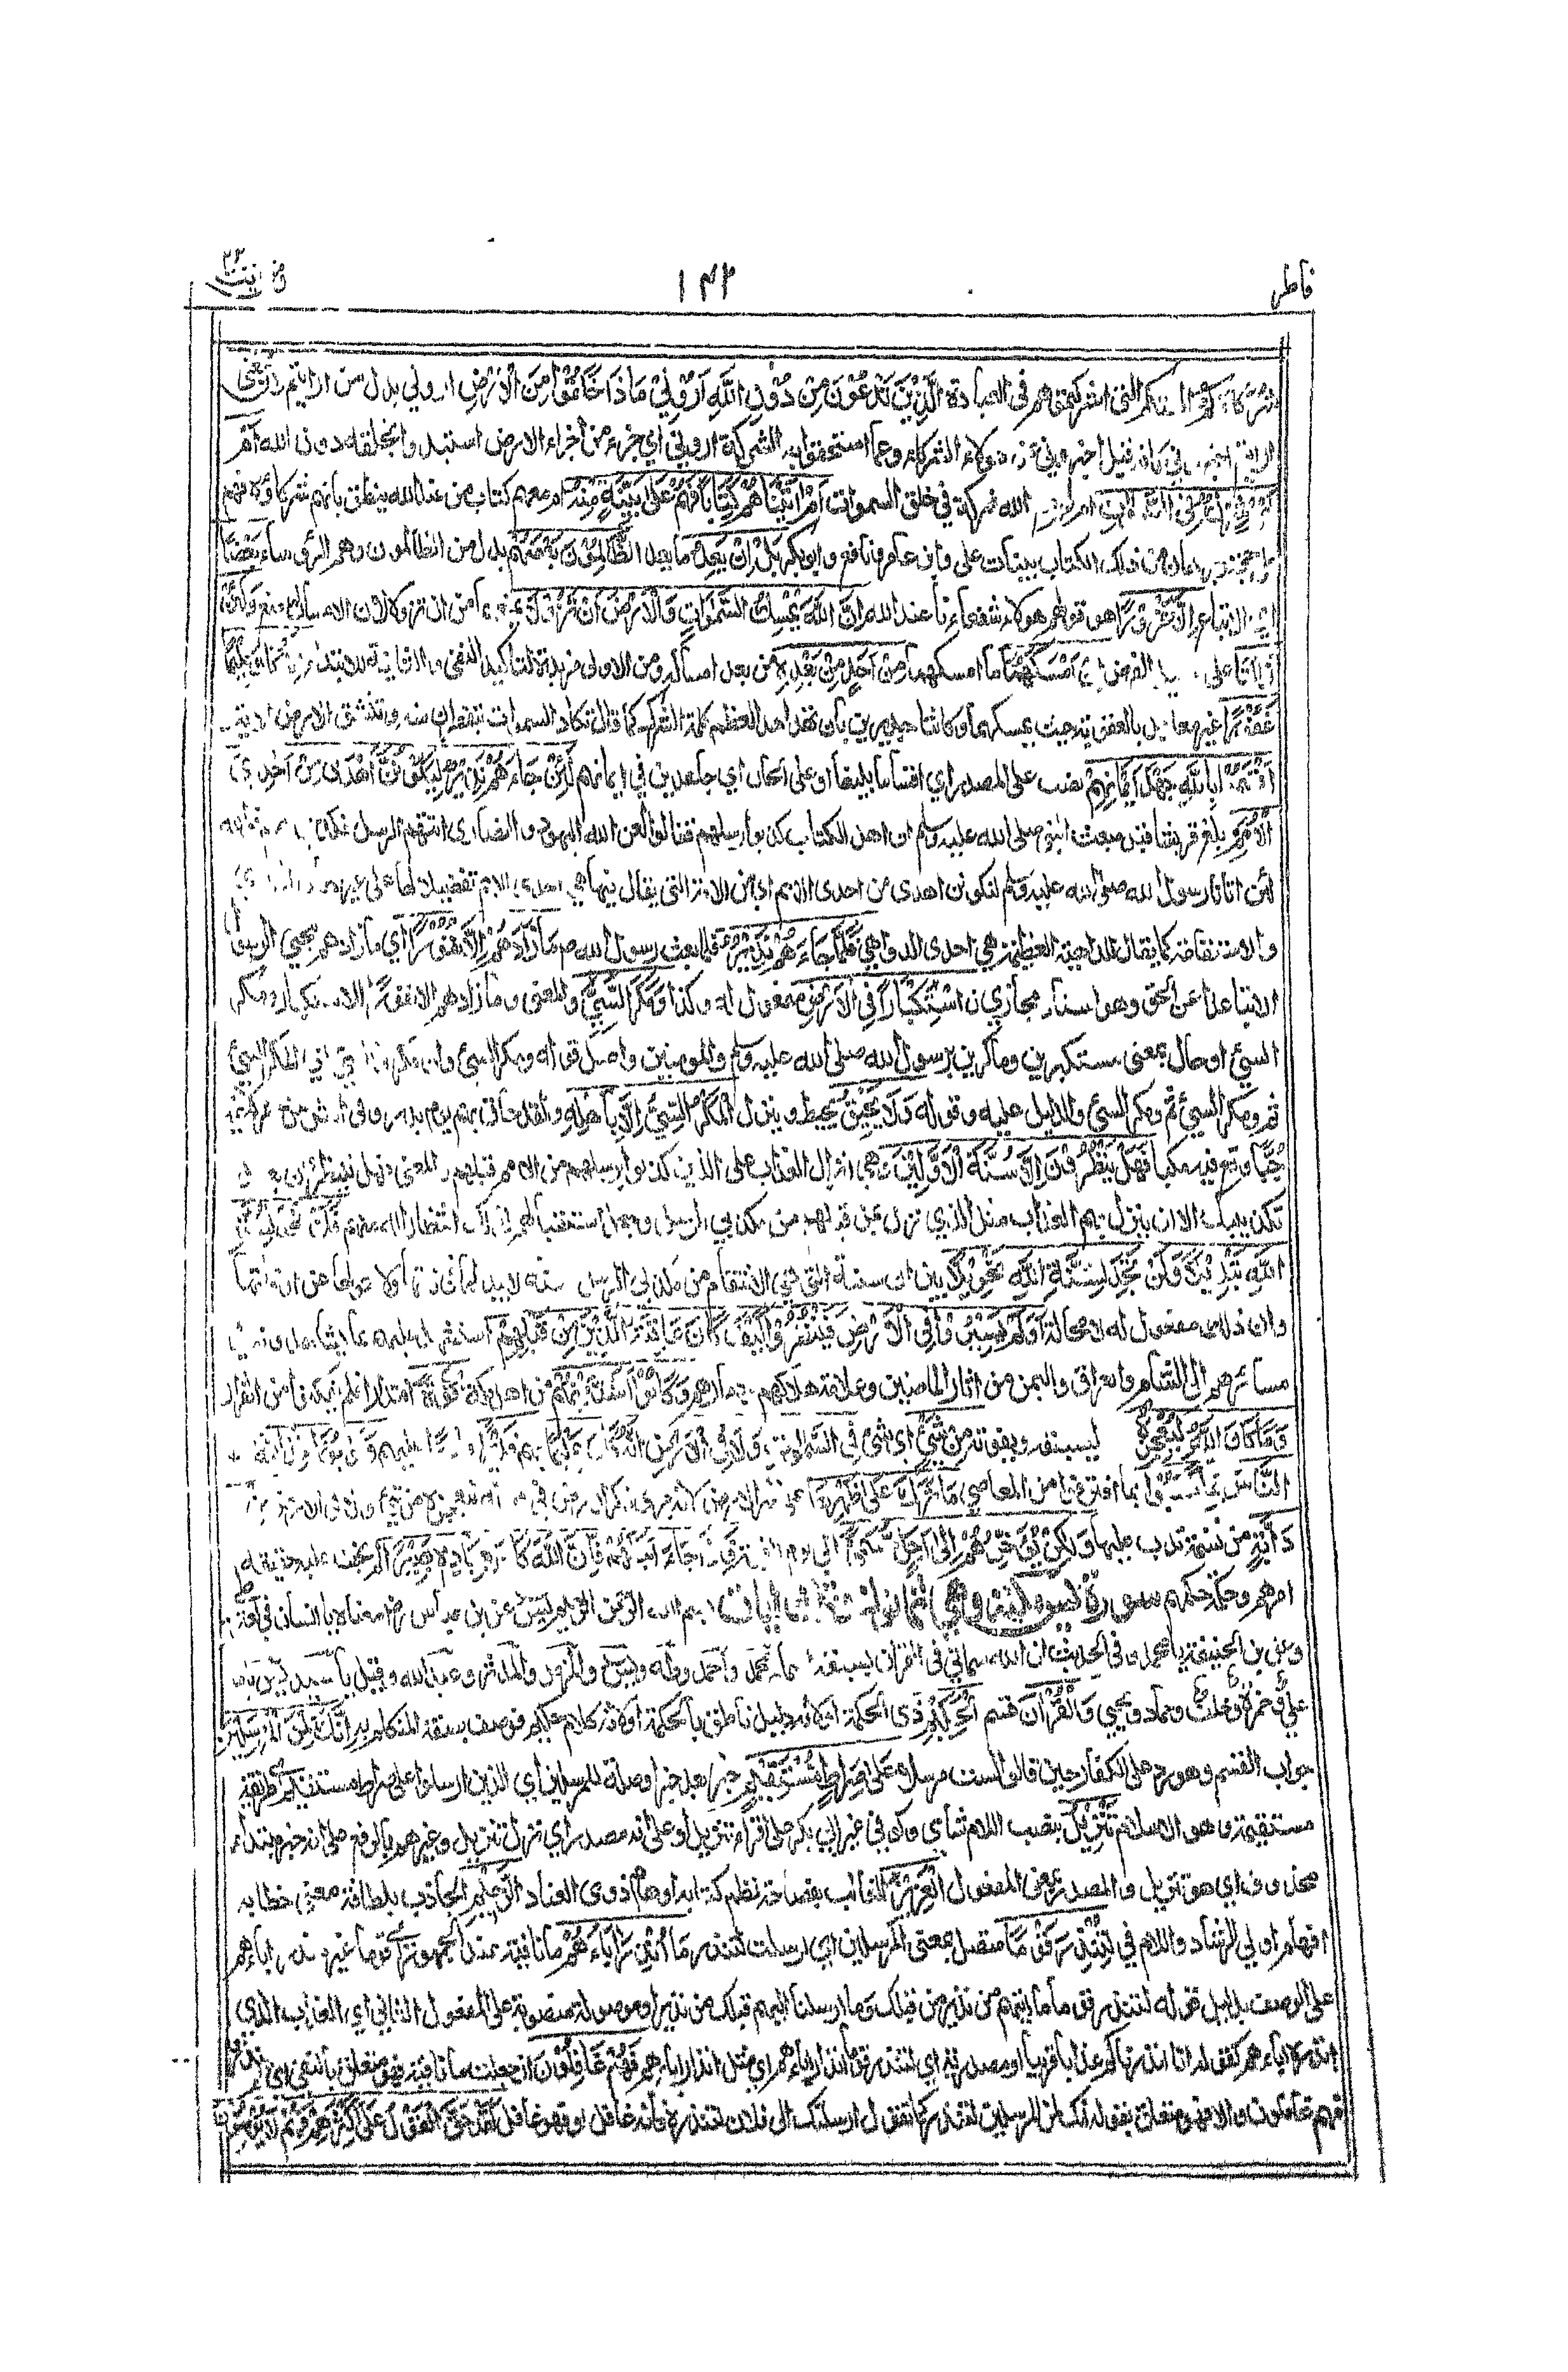 فاطر ١٤٢
شركاءكم التي اشركتموهم في العبادة الَّذِيْنَ تَدْعُوْنَ مِنْ دُوْنِ اللّٰهِ اَرُوْنِيْ مَاذَا خَلَقُوْا مِنَ الْاَرْضِ اروني بدل من ارايتم
ارايتم اخبروني كانه قيل اخبروني عن هولاء الشركاء وعما استحقوا به الشركة اروني اي جزء من اجزاء الارض استبدوا بخلقه دون الله اَمْ
لَهُمْ شِرْكٌ فِي السَّمٰوٰتِ ام لهم مع الله شركة في خلق السموات اَمْ اٰتَيْنٰهُمْ كِتَابًا فَهُمْ عَلٰى بَيِّنَةٍ مِنْهُ ام معهم كتاب من عند الله ينطق بانهم شركاؤه فهم
على حجة وبرهان من ذلك الكتاب بينات علي وابن عامر ونافع وابوبكر بَلْ اِنْ يَعِدُ ما يعد الظَّالِمُوْنَ بَعْضُهُمْ بدل من الظالمون وهم الرؤساء بَعْضًا
اي الاتباع اِلَّا غُرُوْرًا هو قولهم هولاء شفعاؤنا عند الله اِنَّ اللّٰهَ يُمْسِكُ السَّمٰوٰتِ وَالْاَرْضَ اَنْ تَزُوْلَا يمنعهما من ان تزولا لان الامساك منع وَلَئِنْ
زَالَتَا على سبيل الفرض اِنْ اَمْسَكَهُمَا ما امسكهما مِنْ اَحَدٍ مِنْ بَعْدِهٖ من بعد امساكه ومن الاولى مزيدة لتاكيد النفي والثانية للابتداء اِنَّهٗ كَانَ حَلِيْمًا
غَفُوْرًا غير معاجل بالعقوبة حيث يمسكهما وكانتا جديرتين بان تهدا هدا لعظم كلمة الشرك كما قال تكاد السموات يتفطرن منه وتنشق الارض الاية
وَاَقْسَمُوْا بِاللّٰهِ جَهْدَ اَيْمَانِهِمْ نصب على المصدر اي اقساما بليغا او على الحال اي جاهدين في ايمانهم لَئِنْ جَاءَهُمْ نَذِيْرٌ لَيَكُوْنُنَّ اَهْدٰى مِنْ اِحْدَى
الْاُمَمِ بلغ قريشا قبل مبعث النبي صلى الله عليه وسلم ان اهل الكتاب كذبوا رسلهم فقالوا لعن الله اليهود والنصارى اتتهم الرسل فكذبوهم فوالله
لئن اتانا رسول الله صلى الله عليه وسلم لنكونن اهدى من احدى الامم اي من الامة التي يقال فيها هي احدى الامم تفضيلا لها على غيرها في الهدى
والاستقامة كما يقال للداهية العظيمة هي احدى الدواهي فَلَمَّا جَاءَهُمْ نَذِيْرٌ فلما بعث رسول الله صم مَا زَادَهُمْ اِلَّا نُفُوْرًا اي ما زادهم مجيئ الرسول
الا تباعدا عن الحق وهو اسناد مجازي اسْتِكْبَارًا فِي الْاَرْضِ مفعول له وكذا وَمَكْرَ السَّيِّءِ والمعنى وما زادهم الا نفورا للاستكبار ومكر
السيئ او حال بمعنى مستكبرين وماكرين برسول الله صلى الله عليه وسلم والمومنين واصل قوله ومكر السيئ وان مكروا السيئ اي المكر السيئ
ثم ومكر السيئ ثم ومكر السيئ والدليل عليه وقوله وَلَا يَحِيْقُ يحيط وينزل الْمَكْرُ السَّيِّءُ اِلَّا بِاَهْلِهٖ ولقد حاق بهم يوم بدر وفي المثل من حفر لاخيه
جُبًّا وقع فيه مكبا فَهَلْ يَنْظُرُوْنَ اِلَّا سُنَّةَ الْاَوَّلِيْنَ وهي انزال العذاب على الذين كذبوا برسلهم من الامم قبلهم والمعنى فهل ينظرون بعد
تكذيبك الا ان ينزل بهم العذاب مثل الذي نزل بمن قبلهم من مكذبي الرسل وجعل استقبالهم لذلك انتظارا له منهم فَلَنْ تَجِدَ لِسُنَّةِ
اللّٰهِ تَبْدِيْلًا وَلَنْ تَجِدَ لِسُنَّةِ اللّٰهِ تَحْوِيْلًا بين ان سنته التي هي الانتقام من مكذبي الرسل سنة لا يبدلها في ذاتها ولا يحولها عن اوقاتها
وان ذلك مفعول له لا محالة اَوَلَمْ يَسِيْرُوْا فِي الْاَرْضِ فَيَنْظُرُوْا كَيْفَ كَانَ عَاقِبَةُ الَّذِيْنَ مِنْ قَبْلِهِمْ استشهد عليهم بما يشاهدونه في
مسائرهم الى الشام والعراق واليمن من اثار الماضين وعلامة هلاكهم ودمارهم وَكَانُوْا اَشَدَّ مِنْهُمْ من اهل مكة قُوَّةً اقتدارا فلم يتمكنوا من الفرار
وَمَا كَانَ اللّٰهُ لِيُعْجِزَهٗ ليسبقه ويفوته مِنْ شَيْءٍ اي شئ فِي السَّمٰوٰتِ وَلَا فِي الْاَرْضِ اِنَّهٗ كَانَ عَلِيْمًا بهم قَدِيْرًا عليهم وَلَوْ يُؤَاخِذُ اللّٰهُ
النَّاسَ بِمَا كَسَبُوْا بما اقترفوا من المعاصي مَا تَرَكَ عَلٰى ظَهْرِهَا على ظهر الارض لانه جرى ذكر الارض في قوله ليعجزه من شئ ولا في الارض مِنْ
دَابَّةٍ من نسمة تدب عليها وَلٰكِنْ يُؤَخِّرُهُمْ اِلٰى اَجَلٍ مُسَمًّى الى يوم القيمة فَاِذَا جَاءَ اَجَلُهُمْ فَاِنَّ اللّٰهَ كَانَ بِعِبَادِهٖ بَصِيْرًا اي لم يخف عليه حقيقة
امرهم وحكمة حكمهم سورة يس مكية وهي ثمانون وثلث ايات بسم الله الرحمن الرحيم يٰسٓ عن ابن عباس رضـ معناه يا انسان في لغة
وعن ابن الحنفية يا محمد وفي الحديث ان الله سماني في القران بسبعة اسماء محمد واحمد وطه ويس والمزمل والمدثر وعبد الله وقيل يا سيد يس بامالة
علي وحمزة وخلف وحماد ويحيى وَالْقُرْاٰنِ قسم الْحَكِيْمِ ذي الحكمة او لانه دليل ناطق بالحكمة او لانه كلام حكيم فوصف بصفة المتكلم به اِنَّكَ لَمِنَ الْمُرْسَلِيْنَ
جواب القسم وهو رد على الكفار حين قالوا لست مرسلا عَلٰى صِرَاطٍ مُسْتَقِيْمٍ خبر بعد خبر او صلة للمرسلين اي الذين ارسلوا على صراط مستقيم اي طريقة
مستقيمة وهو الاسلام تَنْزِيْلَ بنصب اللام شامي وكوفي غير ابي بكر على اقرا تنزيل او على انه مصدر اي نزل تنزيل وغيرهم بالرفع على انه خبر مبتدأ
محذوف اي هو تنزيل والمصدر بمعنى المفعول الْعَزِيْزِ الغالب بفصاحة نظم كتابه اوهام ذوي العناد الرَّحِيْمِ الجاذب بلطافة معنى خطابه
افهام اولي الرشاد واللام في لِتُنْذِرَ قَوْمًا متصل بمعنى المرسلين اي ارسلت لتنذر مَا اُنْذِرَ اٰبَاؤُهُمْ ما نافية عند الجمهور اي قوما غير منذر اباءهم
على الوصف بدليل قوله لتنذر قوما ما اتيهم من نذير من قبلك وما ارسلنا اليهم قبلك من نذير او موصولة منصوبة على المفعول الثاني اي العذاب الذي
انذره اباءهم كقوله انا انذرناكم عذابا قريبا او مصدرية اي لتنذر قوما انذار اباءهم اي مثل انذار اباءهم فَهُمْ غَافِلُوْنَ ان جعلت ما نافية فهو متعلق بالنفي اي لم ينذروا
فهم غافلون والا فهو متعلق بقوله انك لمن المرسلين لتنذر كما تقول ارسلتك الى فلان لتنذره فانه غافل او فهو غافل لَقَدْ حَقَّ الْقَوْلُ عَلٰى اَكْثَرِهِمْ فَهُمْ لَا يُؤْمِنُوْنَ